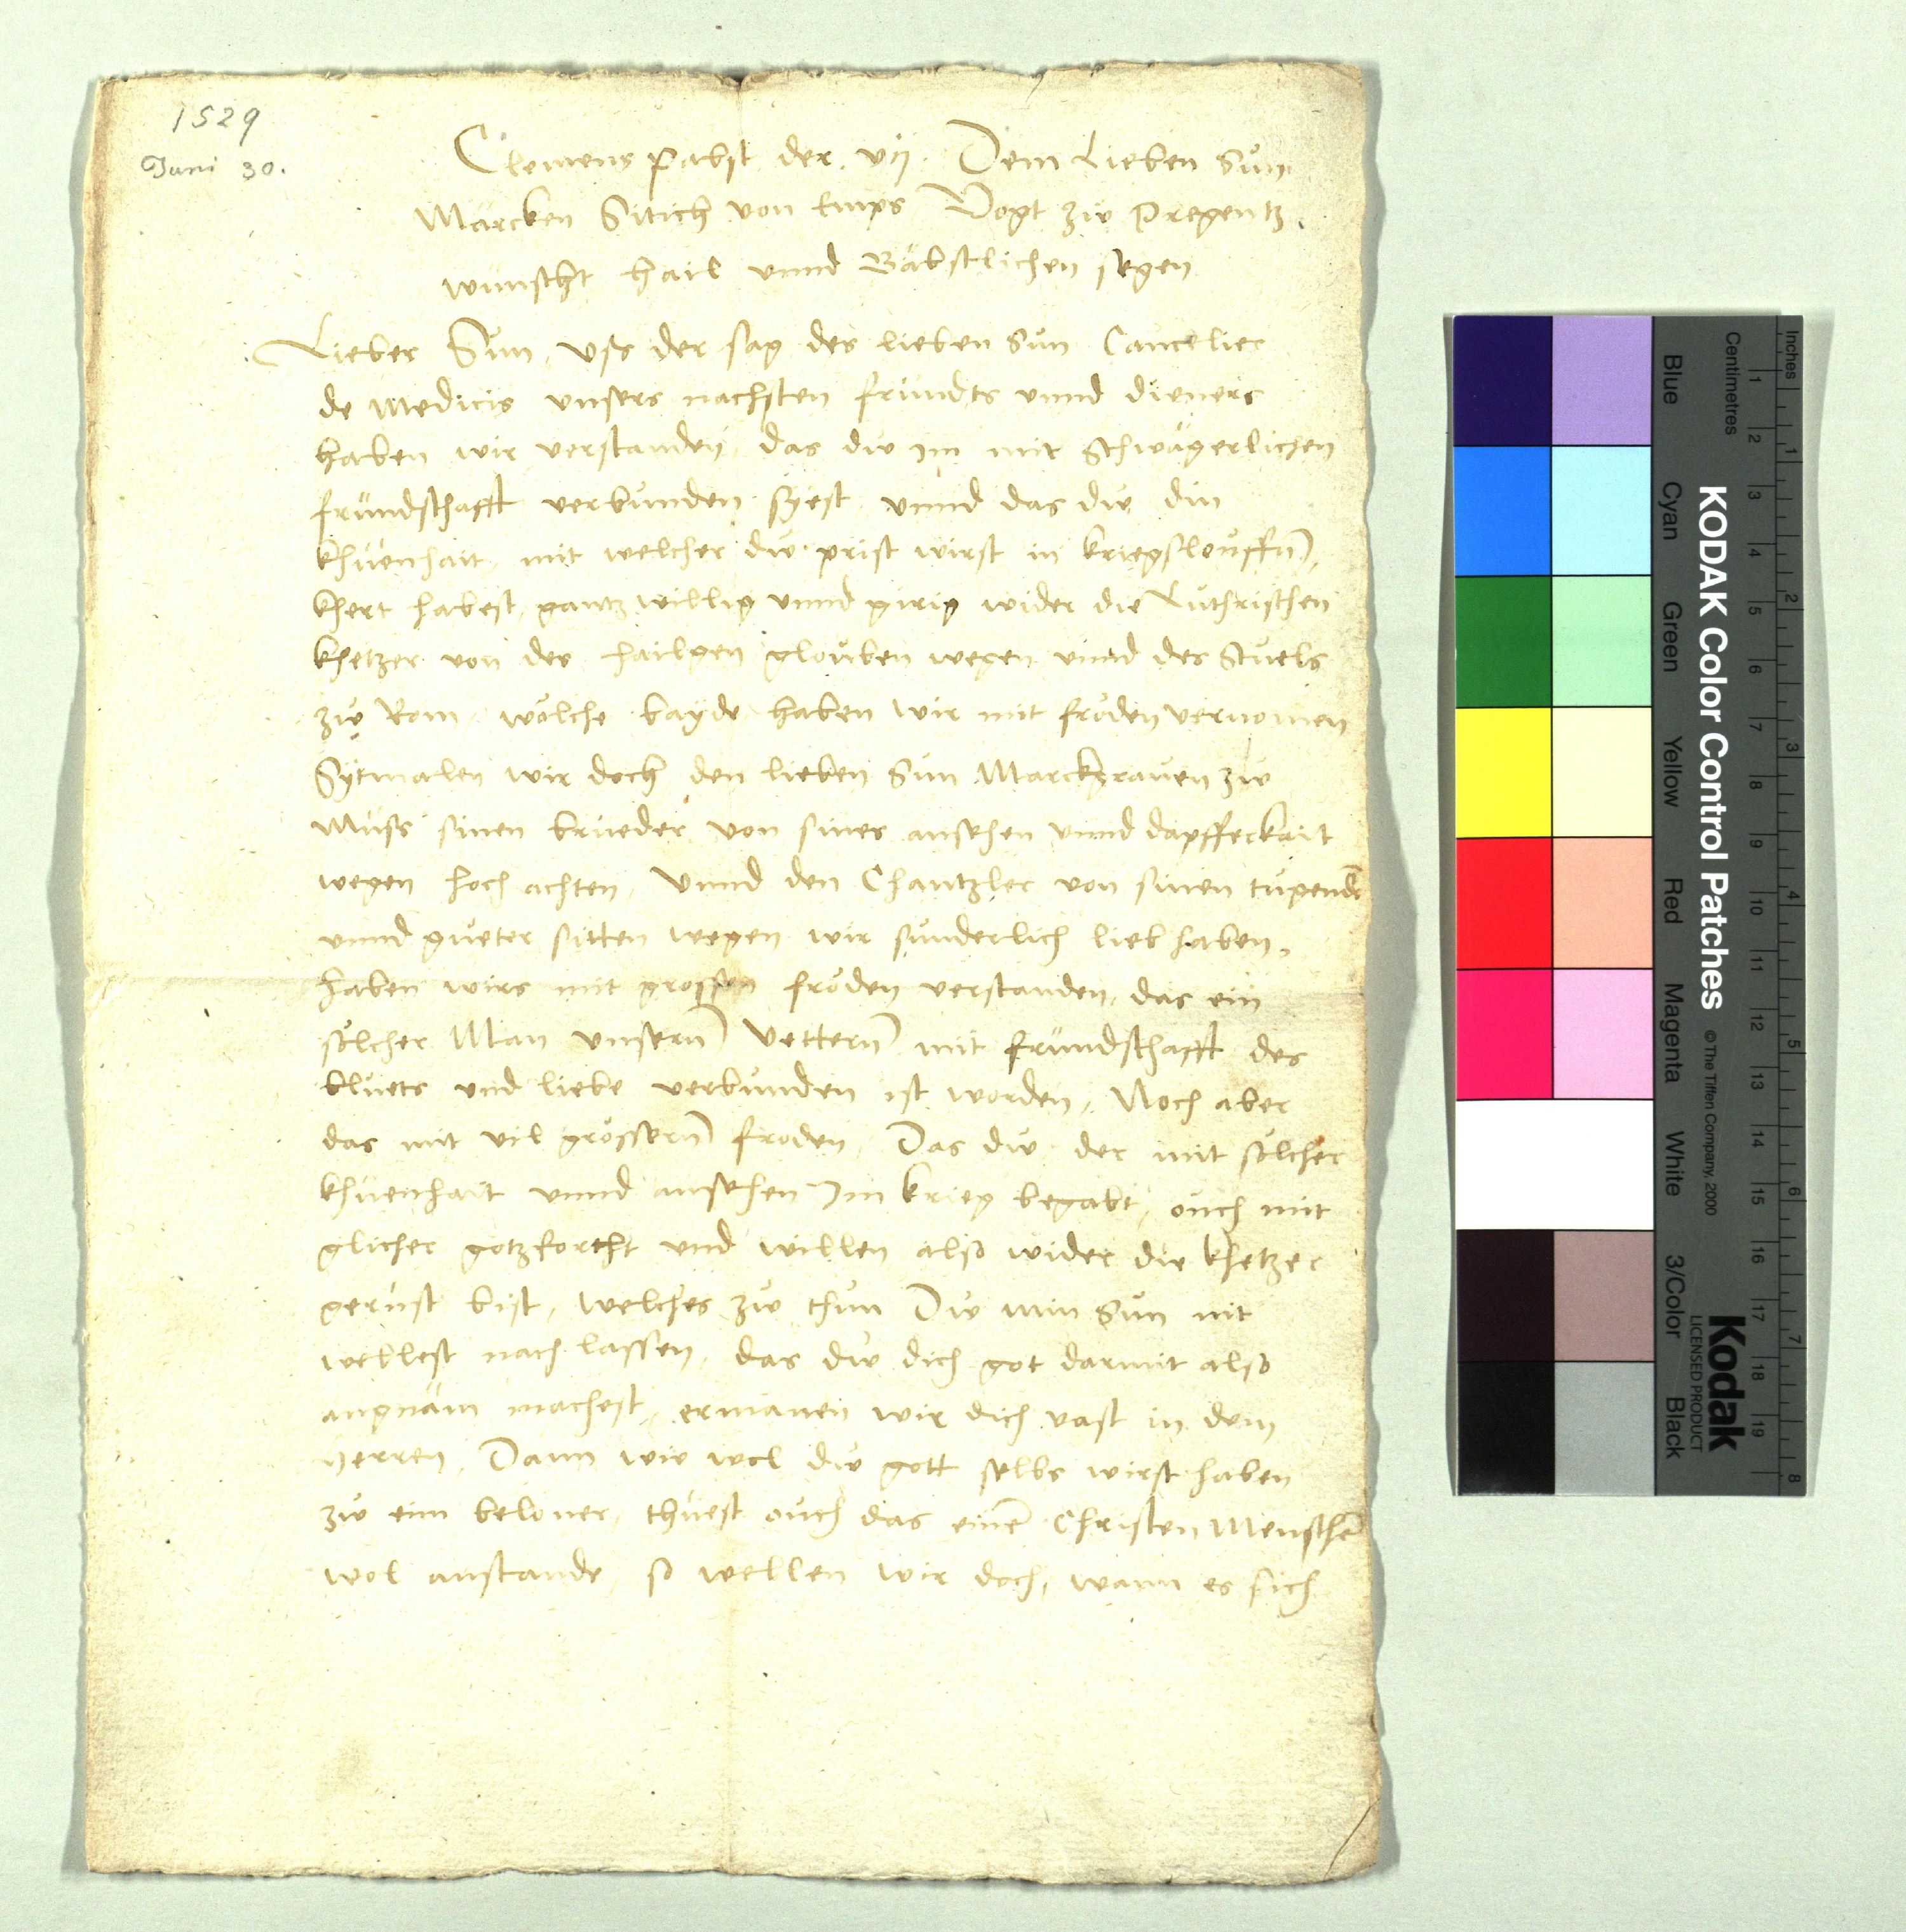 1529
Juni 30.
Clemens Pabst der vij. Dem Lieben Sun
Marcken Sitich von Emps Vogt zu Pregentz
wunscht hail unnd Bäbstlichen segen
Lieber Sun, uss der sag des lieben Sun Cancelier
de Medicis unsers nachsten fründts unnd dieners
haben wir verstanden, das du im mit Schwägerlichen
fründschafft verbunden syest, unnd das du din
khüenhait, mit welcher du prist wirst in kriegslouffn,
khert habest, gantz willig unnd girig wider die Luthrischen
khetzer von des hailgen glouben wegen unnd des Stuels
zu Rom, wölche bayde haben wir mit fröden vernomen
Sytmalen wir doch den lieben Sun Marckgraven zu
Muss sinen brueder von sines ansehen unnd dapfferkait
wegen hoch achten, Unnd den Chantzler von sinen tugend
unnd gueter sitten wegen wir sunderlich lieb haben,
haben wirs mit grossen fröden verstanden, das ein
sölcher Man unsern Vettern mit fründschafft des
bluets und liebe verbunden ist worden, Noch aber
das mit vil grössern froden, Das du der mit sölcher
khüenhait unnd ansehen Im krieg begabt, ouch mit
glicher gotzforcht und willen also wider die khetzer
gerüst bist, welches zu thun Du min Sun nit
wellest nach lassen, das du dich got darmit also
angnäm machest, ermanen wir dich vast in dem
herren, Dann wie wol du gott selbs wirst haben
zu eim beloner, thuest ouch das eine Christen Mensche
wol anstande, so wellen wir doch, wann es sich
KODAK Color Control Patches
© The Tiffen Company, 2000
Kodak
LICENSED PRODUCT
Inches 1 2 3 4 5 6 7 8
Centimetres 1 2 3 4 5 6 7 8 9 10 11 12 13 14 15 16 17 18 19
Blue Cyan Green Yellow Red Magenta White 3/Color Black